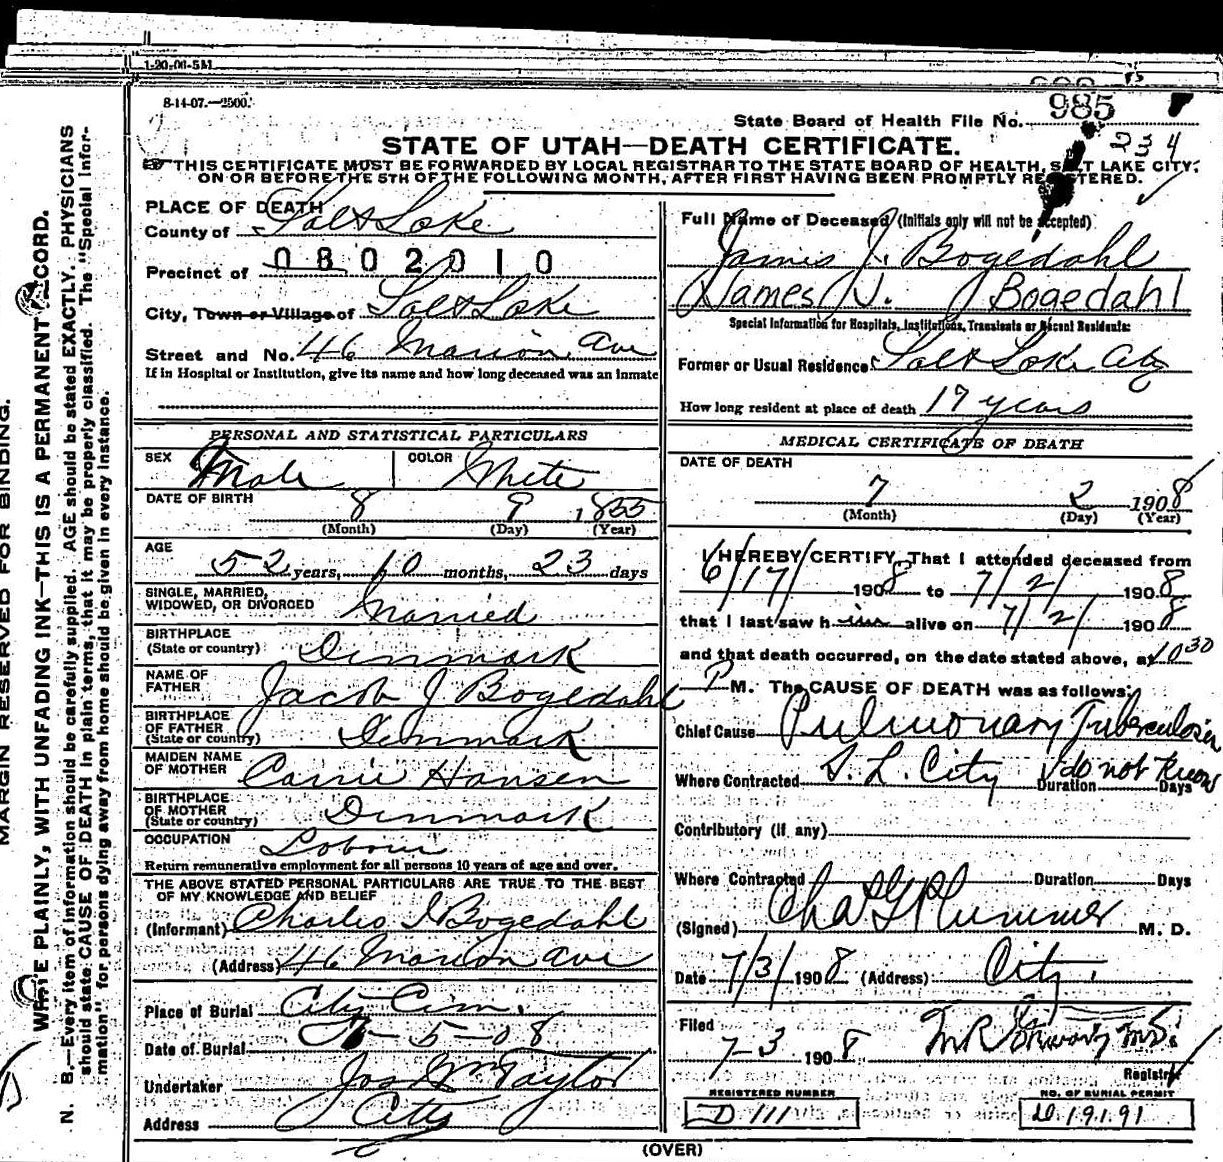 1-20-06-5M
8-14-07.—2500.
985
State Board of Health File No.
234
STATE OF UTAH—DEATH CERTIFICATE.
THIS CERTIFICATE MUST BE FORWARDED BY LOCAL REGISTRAR TO THE STATE BOARD OF HEALTH, SALT LAKE CITY,
ON OR BEFORE THE 5TH OF THE FOLLOWING MONTH, AFTER FIRST HAVING BEEN PROMPTLY REGISTERED.
MARGIN RESERVED FOR BINDING.
WRITE PLAINLY, WITH UNFADING INK—THIS IS A PERMANENT RECORD.
N. B.—Every item of information should be carefully supplied. AGE should be stated EXACTLY. PHYSICIANS
should state CAUSE OF DEATH in plain terms, that it may be properly classified. The "Special Infor-
mation" for persons dying away from home should be given in every instance.
PLACE OF DEATH
County of Salt Lake
Precinct of 0802010
City, Town or Village of Salt Lake
Street and No. 46 Marion Ave
If in Hospital or Institution, give its name and how long deceased was an inmate
PERSONAL AND STATISTICAL PARTICULARS
SEX Male COLOR White
DATE OF BIRTH
8 9 1855
(Month) (Day) (Year)
AGE
52 years, 10 months, 23 days
SINGLE, MARRIED,
WIDOWED, OR DIVORCED Married
BIRTHPLACE
(State or country) Denmark
NAME OF
FATHER Jacob J Bogedahl
BIRTHPLACE
OF FATHER
(State or country) Denmark
MAIDEN NAME
OF MOTHER Carrie Hansen
BIRTHPLACE
OF MOTHER
(State or country) Denmark
OCCUPATION Labour
Return remunerative employment for all persons 10 years of age and over.
THE ABOVE STATED PERSONAL PARTICULARS ARE TRUE TO THE BEST
OF MY KNOWLEDGE AND BELIEF
(Informant) Charles J Bogedahl
(Address) 46 Marion Ave
Place of Burial City Cem.
Date of Burial 7-5-08
Undertaker Jos Wm Taylor
Address City
Full Name of Deceased (Initials only will not be accepted)
James J. Bogedahl
James J. Bogedahl
Special Information for Hospitals, Institutions, Transients or Recent Residents:
Former or Usual Residence Salt Lake City
How long resident at place of death 17 years
MEDICAL CERTIFICATE OF DEATH
DATE OF DEATH
7 2 1908
(Month) (Day) (Year)
I HEREBY CERTIFY, That I attended deceased from
6/17/ 1908 to 7/2/ 1908
that I last saw him alive on 7/2/ 1908
and that death occurred, on the date stated above, at 10 30
P M. The CAUSE OF DEATH was as follows:
Chief Cause Pulmonary Tuberculosis
Where Contracted S. L. City Duration do not know Days
Contributory (if any)
Where Contracted Duration Days
(Signed) Chas G Plummer M. D.
Date 7/3/ 1908 (Address) City.
Filed
7-3 1908 M R M.D.
Registrar
REGISTERED NUMBER
D 111
NO. OF BURIAL PERMIT
D.19191
(OVER)